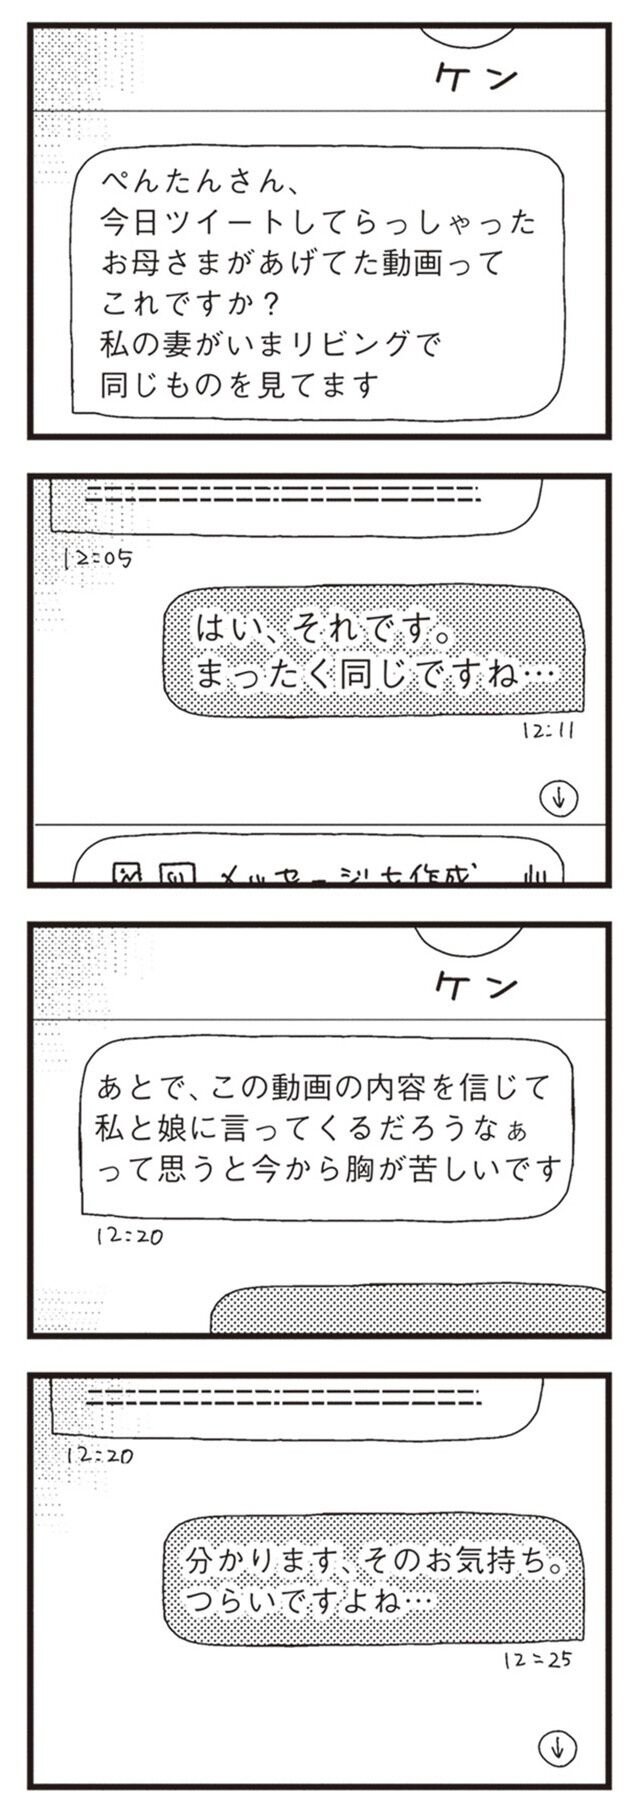 ケン
ぺんたんさん、
今日ツイートしてらっしゃった
お母さまがあげてた動画って
これですか?
私の妻がいまリビングで
同じものを見てます
12:05
はい、それです。
まったく同じですね…
12:11
メッセージを作成
ケン
あとで、この動画の内容を信じて
私と娘に言ってくるだろうなぁ
って思うと今から胸が苦しいです
12:20
12:20
分かります、そのお気持ち。
つらいですよね…
12:25